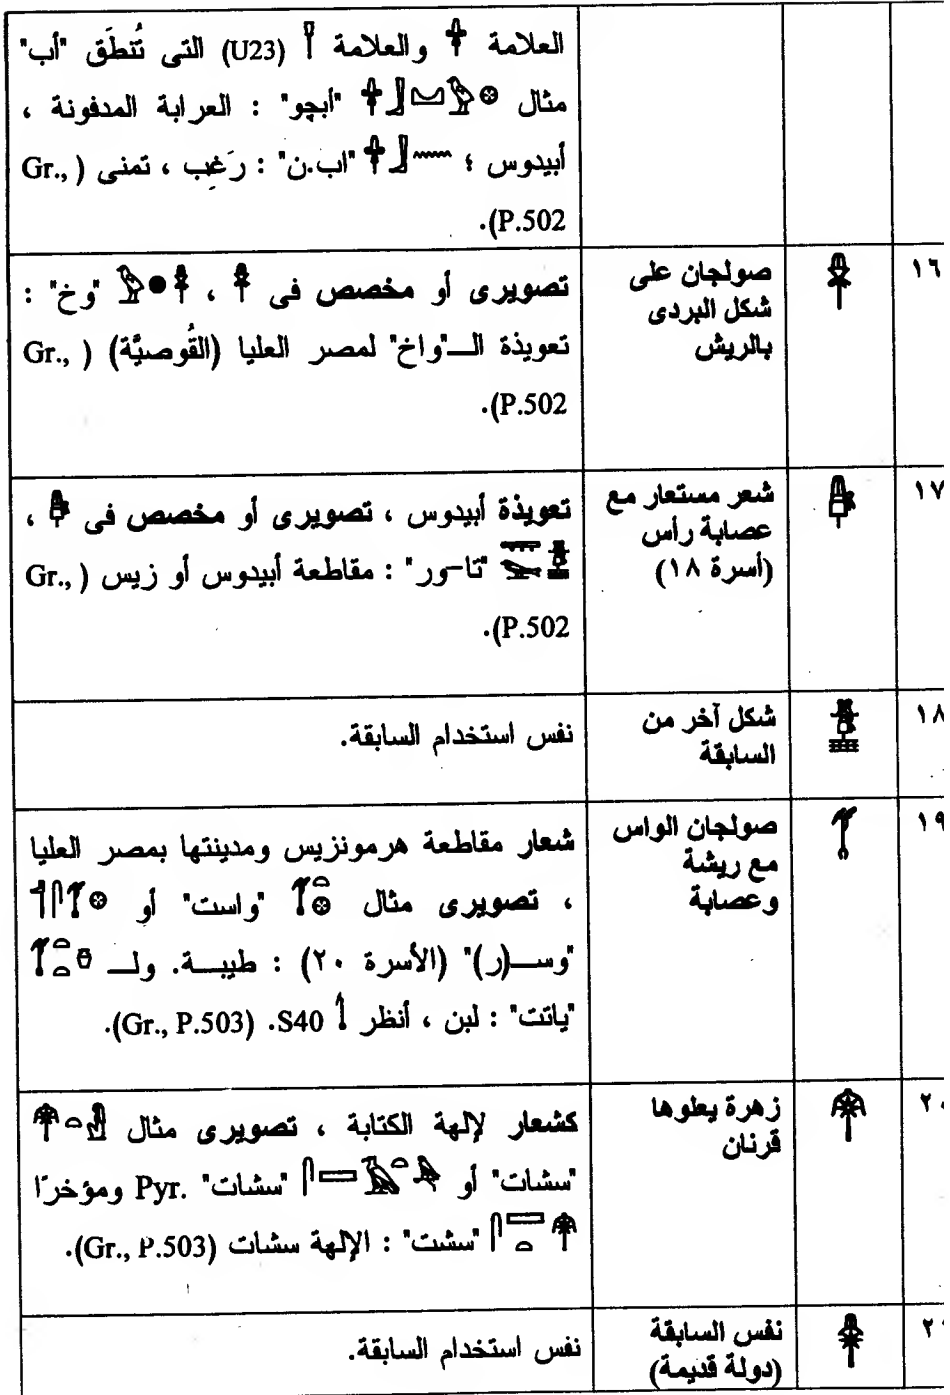 العلامة 𓋬 والعلامة 𓍋 (U23) التى تُنطَق "أب"
مثال "أبچو" : العرابة المدفونة ،
أبيدوس ؛ "اب.ن" : رَغِب ، تمنى ( Gr.,
P.502).
١٦
صولجان على
شكل البردى
بالريش
تصويرى أو مخصص فى ، "وخ" :
تعويذة الــ"واخ" لمصر العليا (القُوصيَّة) ( Gr.,
P.502).
١٧
شعر مستعار مع
عصابة رأس
(أسرة ١٨)
تعويذة أبيدوس ، تصويرى أو مخصص فى ،
"تا-ور" : مقاطعة أبيدوس أو زيس ( Gr.,
P.502).
١٨
شكل آخر من
السابقة
نفس استخدام السابقة.
١٩
صولجان الواس
مع ريشة
وعصابة
شعار مقاطعة هرمونزيس ومدينتها بمصر العليا
، تصويرى مثال "واست" أو
"وســـ(ر)" (الأسرة ٢٠) : طيبـــة. ولـــ
"ياتت" : لبن ، أنظر S40. (Gr., P.503).
٢٠
زهرة يعلوها
قرنان
كشعار لإلهة الكتابة ، تصويرى مثال
"سشات" أو "سشات" Pyr. ومؤخرًا
"سشت" : الإلهة سشات (Gr., P.503).
نفس السابقة
(دولة قديمة)
نفس استخدام السابقة.